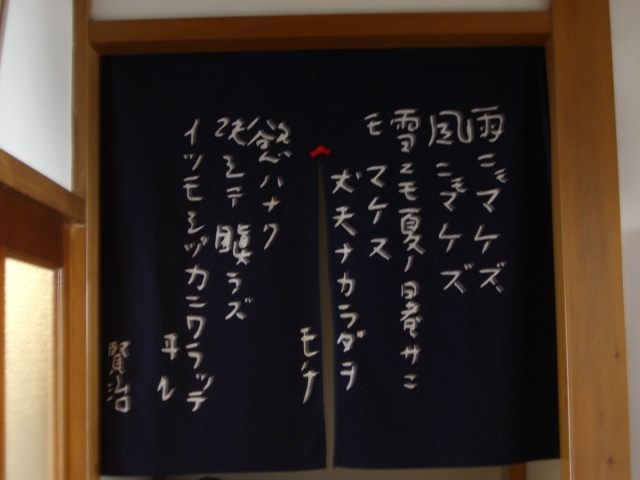 雨ニモマケズ
風ニモマケズ
雪ニモ夏ノ日暑サニ
モマケス
丈夫ナカラダヲ
モチ
慾ハナク
決シテ瞋ラズ
イツモシヅカニワラッテ
ヰル
賢治